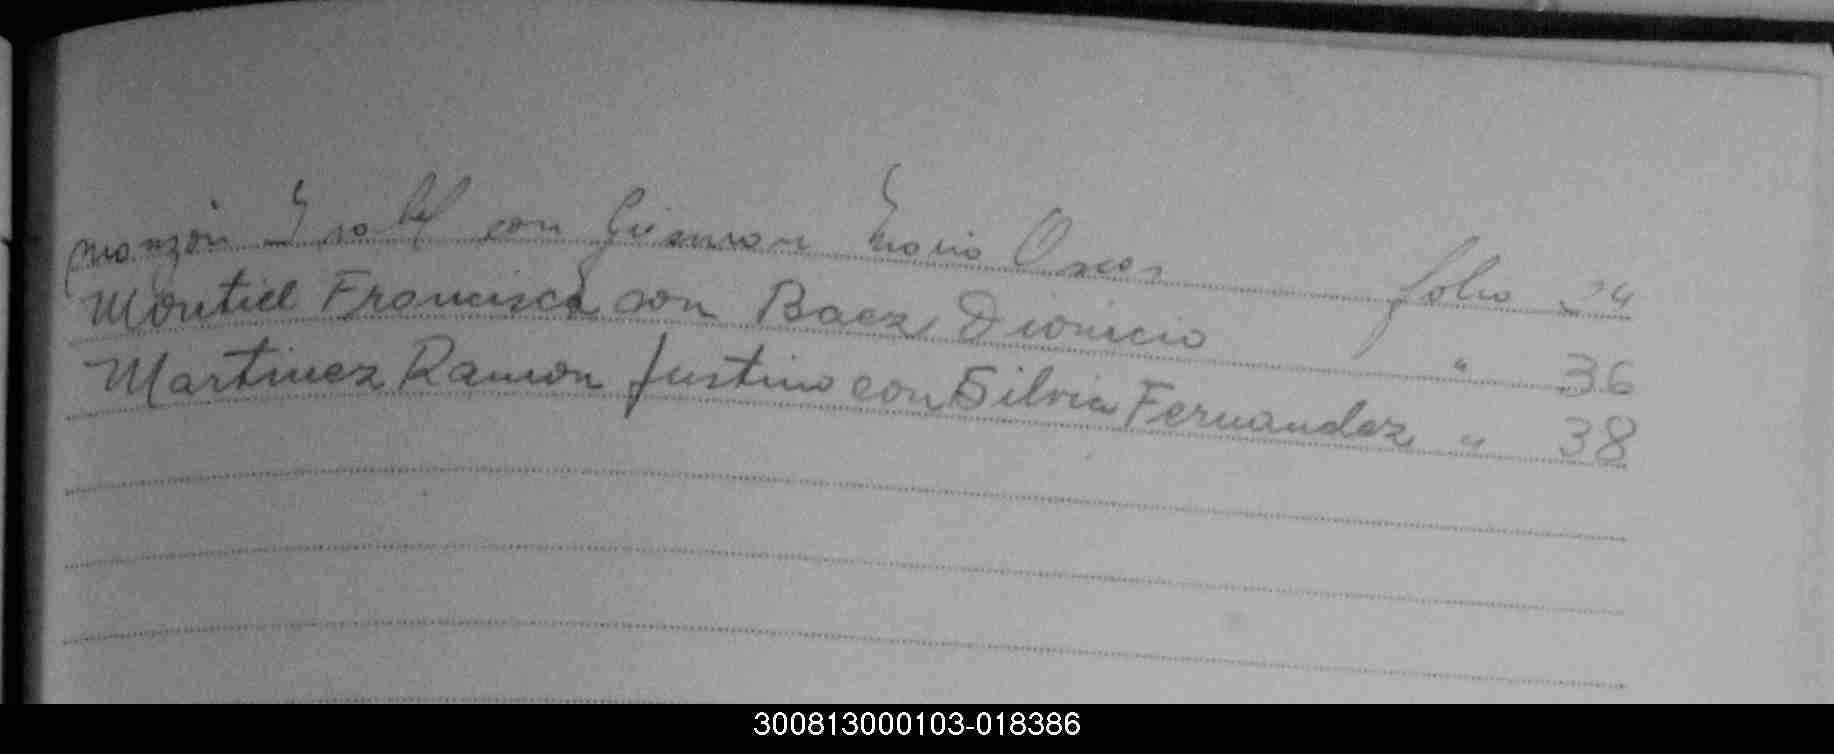 Monzón Isabel con Guzman Mario Oscar folio 34
Montiel Francisca con Baez Dionicio " 36
Martinez Ramon Justino con Silvia Fernandez " 38
300813000103-018386